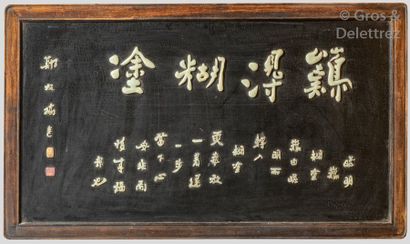 © Gros & Delettrez
難得糊塗
聰明
難
糊塗
難由聰
明而
轉入
糊塗
更難放
一著退
一步
當下心
安非圖
後來福
報也
鄭板橋